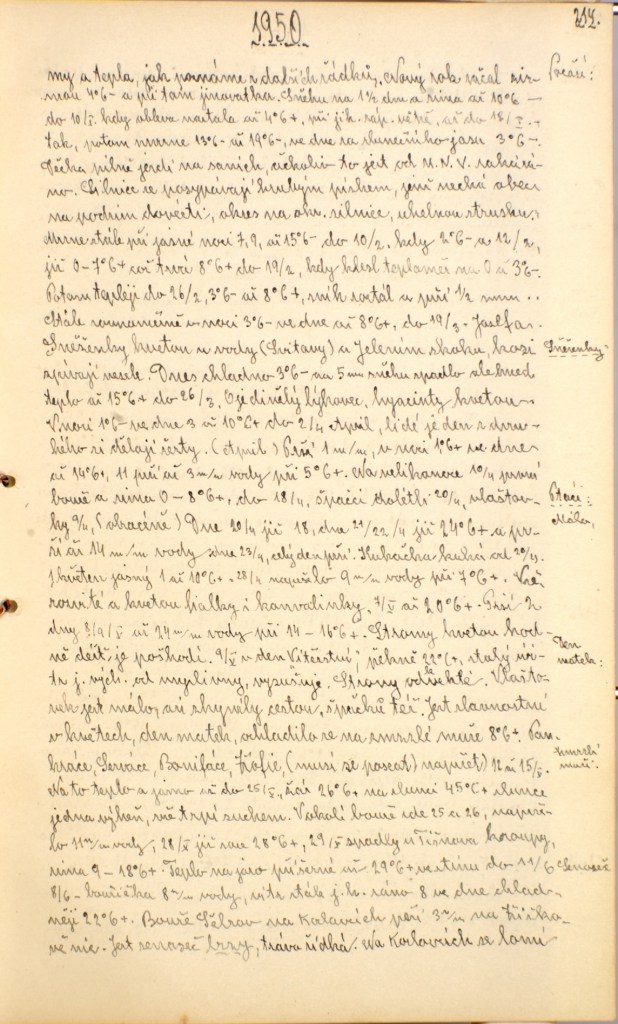 1950.
217.
my a tepla, jak poznáme z dalších řádků. Nový rok začal zi-
Počasí:
mou 4°6- a při tom jinovatka. Sněhu na 1½ dm a zima až 10°6-
do 10/I. kdy obleva nastala až 4°6+, při jih. záp. větě, až do 18/I.
Tak, potom mrzne 13°6- až 19°6-, ve dne za slunečního jasu 3°6-.
pilně jezdí na saních, ačkoliv to jest od M.N.V. zakázá-
no. Silnice se posypávají hrubým pískem, jenž nechá obec
na podzim dovézti, okres na okr. silnice, uhelnou strusku.
Mrzne stále při jasné noci 7, 9, až 15°6- do 10/2. kdy 2°6- a 12/2,
již 0-7°6+ což trvá 8°6+ do 19/2, kdy klesl teploměr na 0 a 3°6-.
Potom tepleji do 26/2, 3°6- až 8°6+, sníh roztál a prší ½ mm..
Stále rovnoměrně v noci 3°6- ve dne až 8°6+, do 19/3. Josefa.
Sněženky kvetou u vody (Svitavy) a Jelením skoku, kosi
Sněženky
zpívají vesele. Dnes chladno 3°6- na 5 mm sněhu spadlo ale hned
teplo až 15°6+ do 26/3. Ojedinělý lýkovec, hyacinty kvetou.
V noci 1°6- ve dne 3 až 10°6+ do 2/4 April, lidé jeden z dru-
hého si dělají žerty. (April) Prší 1 m/m, v noci 1°6+ ve dne
až 14°6+, 11 prší až 3 m/m vody při 5°6+. Na velikonoce 10/4 první
bouře a zima 0-8°6+, do 18/4, špačci doletěli 20/4, vlaštov-
Ptáci:
ky 9/4, (obráceně) Dne 20/4 již 18, dna 21/22/4 již 24°6+ a pr-
Málo,
ší až 14 m/m vody dne 23/4, celý den prší. Kukačka kuká od 30/4.
1 květen jasný 1 až 10°6+. 28/4 napršelo 9 m/m vody při 7°6+. Vše
rozvité a kvetou fialky i konvalinky, 7/V až 20°6+. Prší 2
dny 8/9/V až 24 m/m vody při 14-16°6+. Stromy kvetou hod-
ně déšť je poškodí. 9/V v den Vítězství, pěkně 22°6+, stálý ví-
Den
tr j. vých. od myslivny, vysušuje. Stromy odkvetlé. Vlašto-
matek:
vek jest málo, asi zhynuly cestou, špačků též. Jest slavnostní
v květech, den matek, ochladilo se na zmrzlé muže 8°6+. Pan-
zmrzlí
kráce, Serváce, Bonifáce, Žofie, (musí se poscati) napřed 12 až 15/V.
muži:
Na to teplo a jasno až do 25/V, žár 26°6+ na slunci 45°C+ slunce
jedna výheň, vše trpí suchem. V okolí bouře zde 25 a 26, naprše-
lo 11 m/m vody, 28/V již zase 28°6+, 29/V spadly u Tišnova kroupy,
zima 9-18°6+. Teplo na jaro příšerné až 29°6+ ve stínu do 11/6
Senoseč
8/6- bouřička 8 m/m vody, vítr stále j.v. ráno 8 ve dne chlad-
něji 22°6+. Bouře na Kozlovcích prší 3 m/m na
vě nic. Jest senoseč brzy, tráva řídká. Na Kozlovcích se lomí